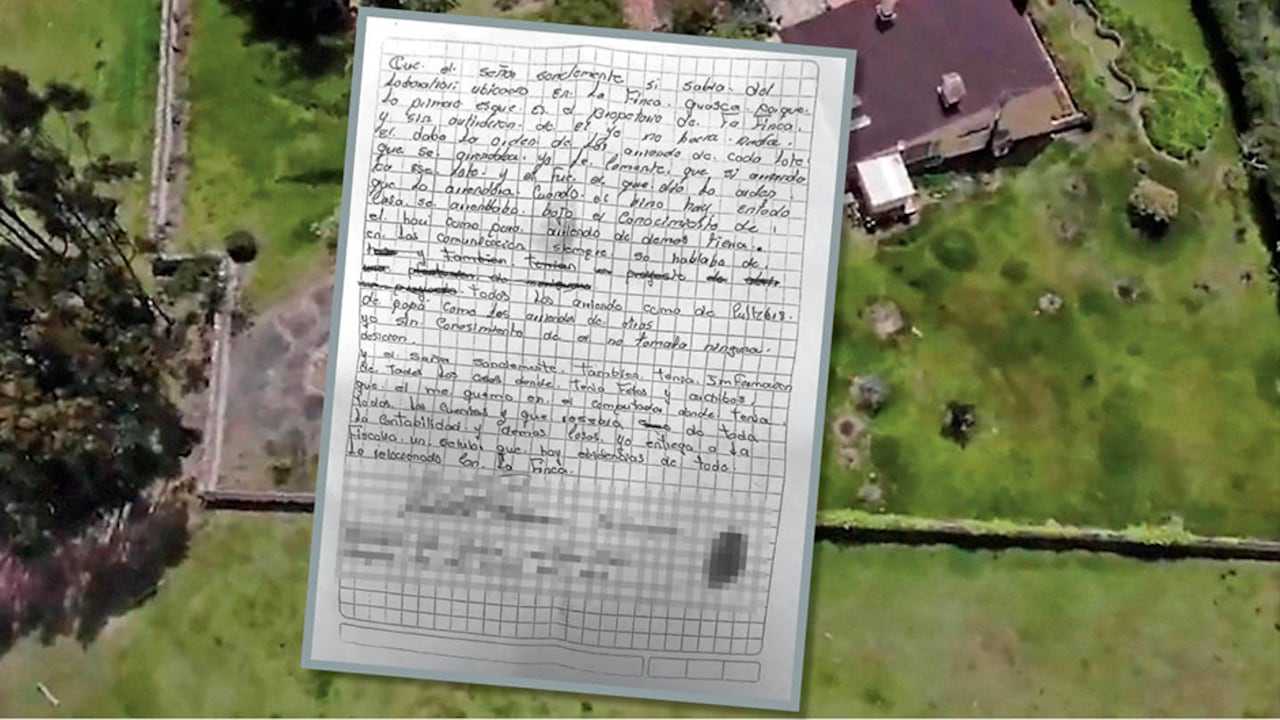 Que el señor sanclemente si sabia del
Laboratori ubicado en la Finca guasca porque
Lo primero esque es el propetario de la Finca.
y sin autirición de el yo no haria nada.
El daba la orden de los arriendo de cada lote
que se arrendaba yo le comente que si arrenda
ba ese lote y el fue el que dio la orden
que lo arrendara cuando el pino hay entado
Casa se arrendaba bajo el Conocimiosto de
el hay como para arriendo de demas tierra.
en las comunicación siempre se hablaba de
y tambien tenian un proyecto de
todos los arriendo como de
de papa como los arriendos de otras
yo sin Conosimiento de el no tomaba ninguna
desicion.
y el señor sanclemente tambien tenia Imformacion
de todas las cosas donde tenia Fotos y archibos
que el me quemo en el computador donde tenia
todas las cuentas y que resebia de toda
La Contabilidad y demas cosas. yo entrega a la
Fiscalia un selular que hay evidencias de todo
Lo relacionado con la Finca.